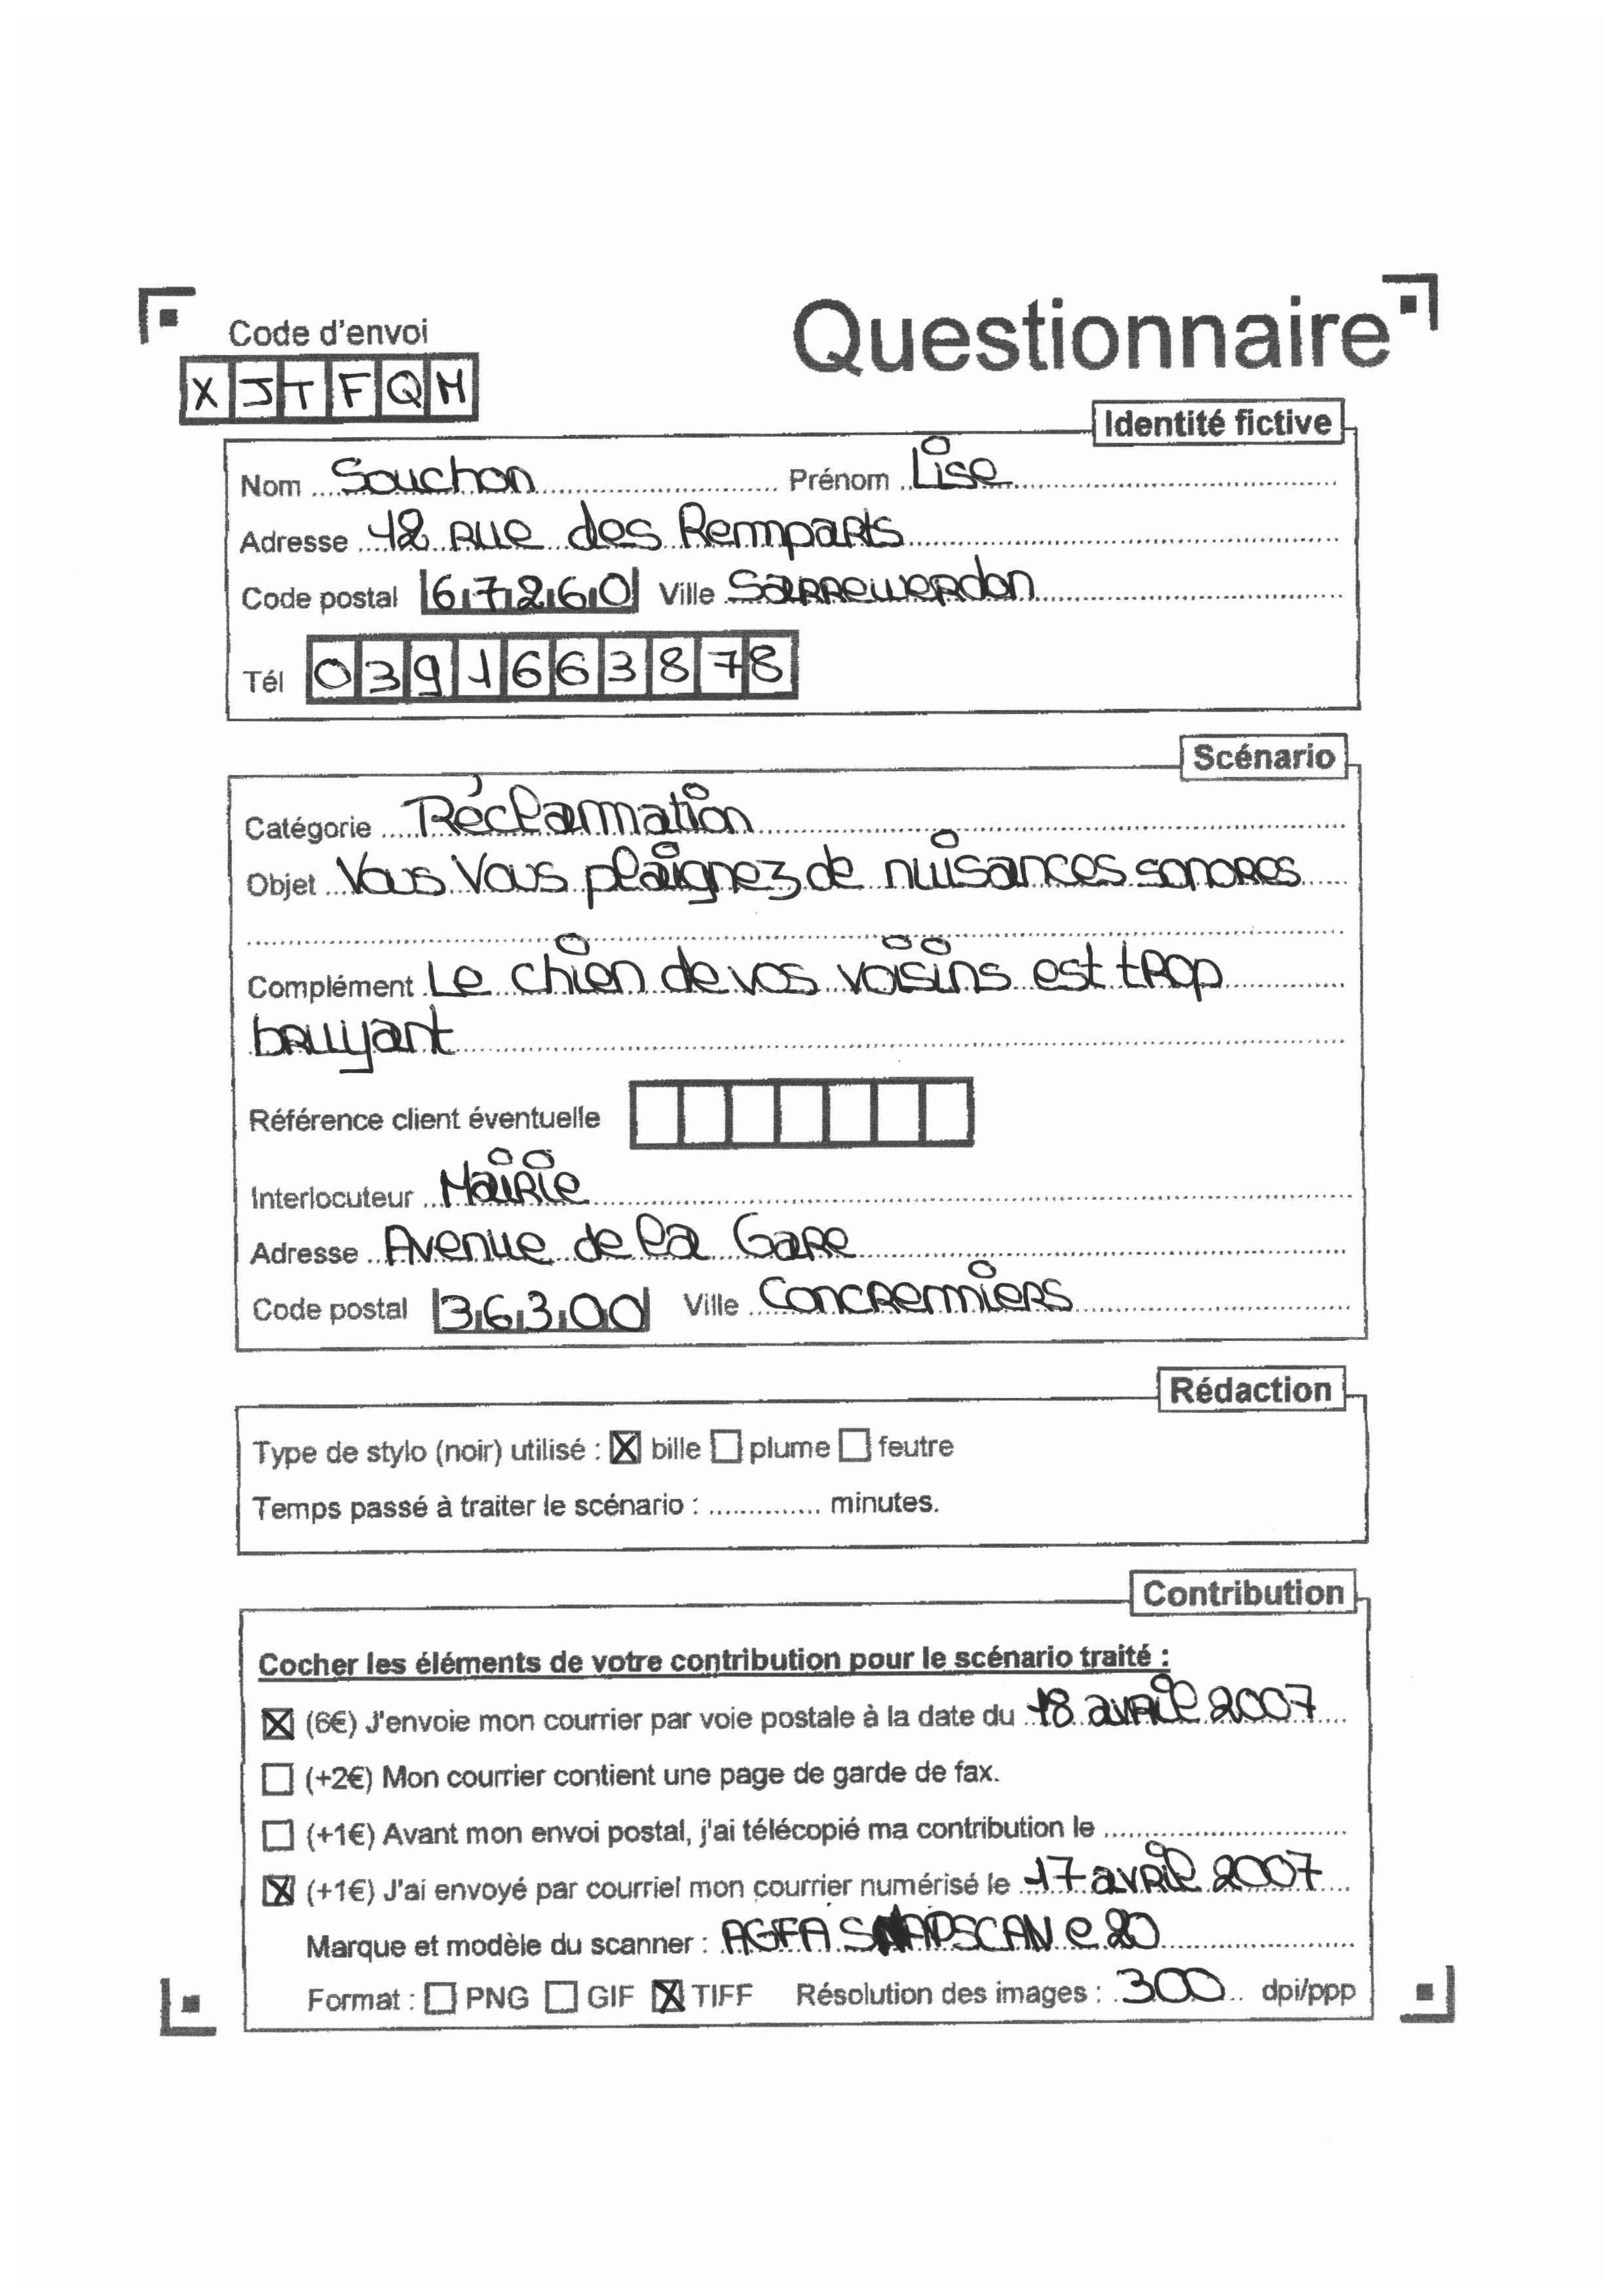 Code d'envoi
Questionnaire
X J T F Q M
Identité fictive
Nom Souchon Prénom Lise
Adresse 12 rue des Remparts
Code postal 67260 Ville Sarrewerdon
Tél 0391663878
Scénario
Catégorie Réclammation
Objet Vous Vous plaignez de nuisances sonores
Complément Le chien de vos voisins est trop
bruyant
Référence client éventuelle
Interlocuteur Mairie
Adresse Avenue de la Gare
Code postal 36300 Ville Concremmiers
Rédaction
Type de stylo (noir) utilisé : ☒ bille ☐ plume ☐ feutre
Temps passé à traiter le scénario : ............. minutes.
Contribution
Cocher les éléments de votre contribution pour le scénario traité :
☒ (6€) J'envoie mon courrier par voie postale à la date du 18 avril 2007
☐ (+2€) Mon courrier contient une page de garde de fax.
☐ (+1€) Avant mon envoi postal, j'ai télécopié ma contribution le
☒ (+1€) J'ai envoyé par courriel mon courrier numérisé le 17 avril 2007
Marque et modèle du scanner : AGFA SNAPSCAN e 20
Format : ☐ PNG ☐ GIF ☒ TIFF Résolution des images : 300 dpi/ppp